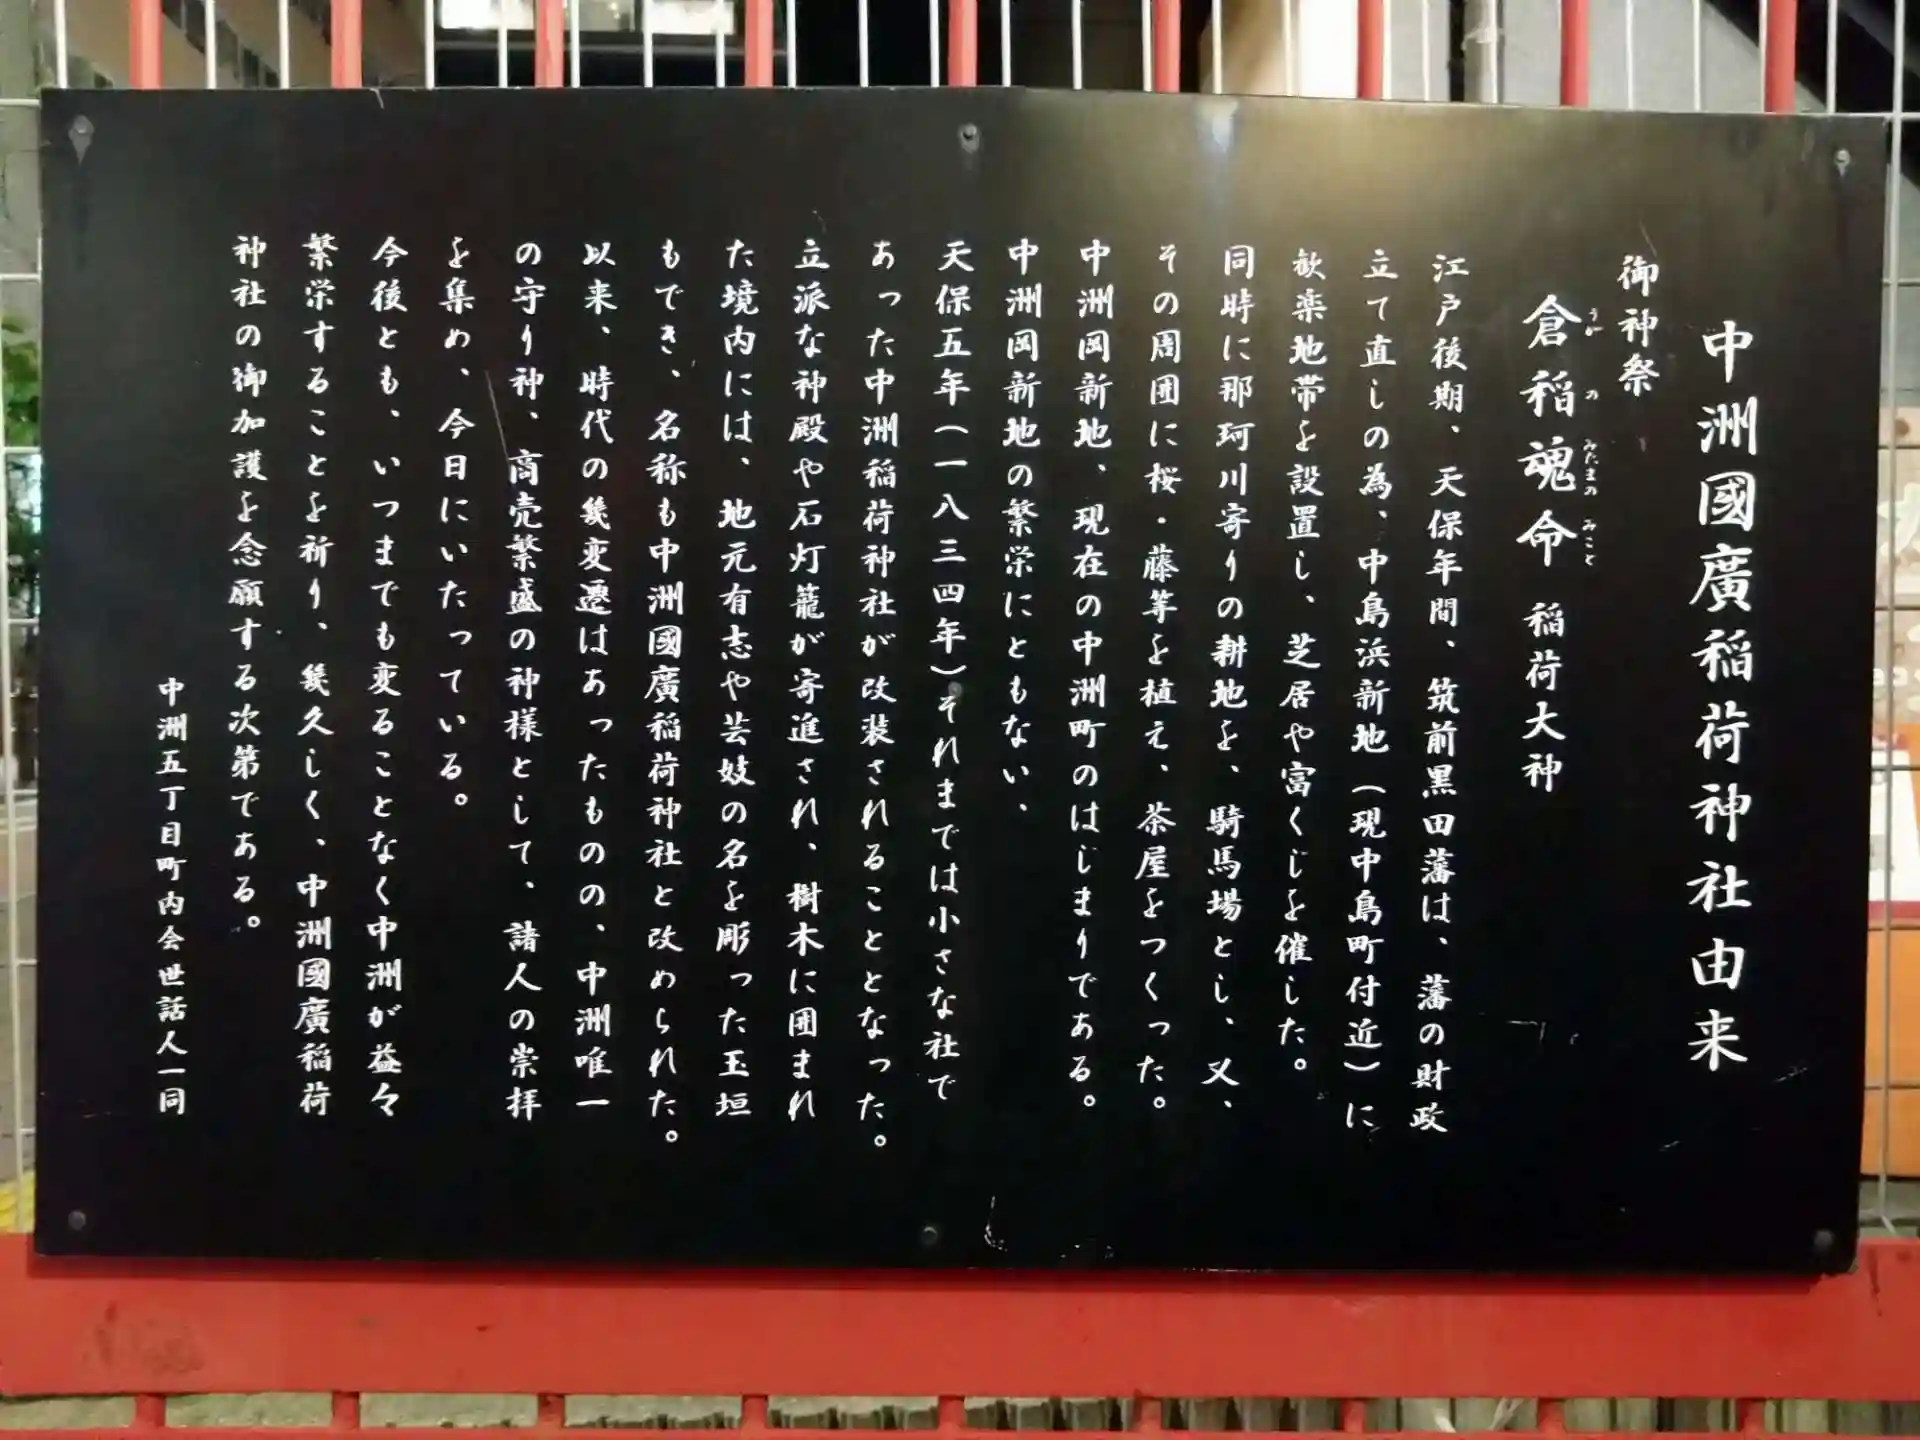 中洲國廣稲荷神社由来
御神祭
倉稲魂命 稲荷大神
江戸後期、天保年間、筑前黒田藩は、藩の財政
立て直しの為、中島浜新地(現中島町付近)に
歓楽地帯を設置し、芝居や富くじを催した。
同時に那珂川寄りの耕地を、騎馬場とし、又、
その周囲に桜・藤等を植え、茶屋をつくった。
中洲岡新地、現在の中洲町のはじまりである。
中洲岡新地の繁栄にともない、
天保五年(一八三四年)それまでは小さな社で
あった中洲稲荷神社が改装されることとなった。
立派な神殿や石灯籠が寄進され、樹木に囲まれ
た境内には、地元有志や芸妓の名を彫った玉垣
もでき、名称も中洲國廣稲荷神社と改められた。
以来、時代の幾変遷はあったものの、中洲唯一
の守り神、商売繁盛の神様として、諸人の崇拝
を集め、今日にいたっている。
今後とも、いつまでも変ることなく中洲が益々
繁栄することを祈り、幾久しく、中洲國廣稲荷
神社の御加護を念願する次第である。
中洲五丁目町内会世話人一同